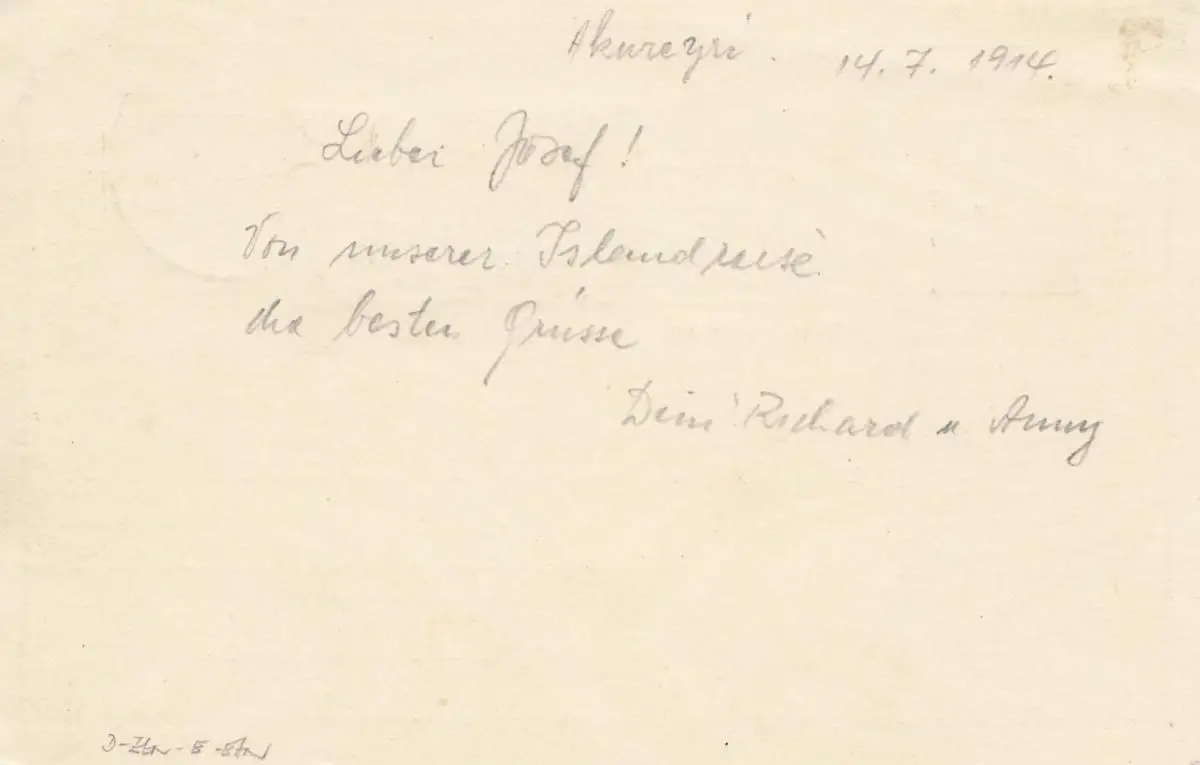 Akureyri. 14. 7. 1914.
Lieber Josef!
Von unserer Islandreise
die besten Grüsse
Dein Richard u Anny